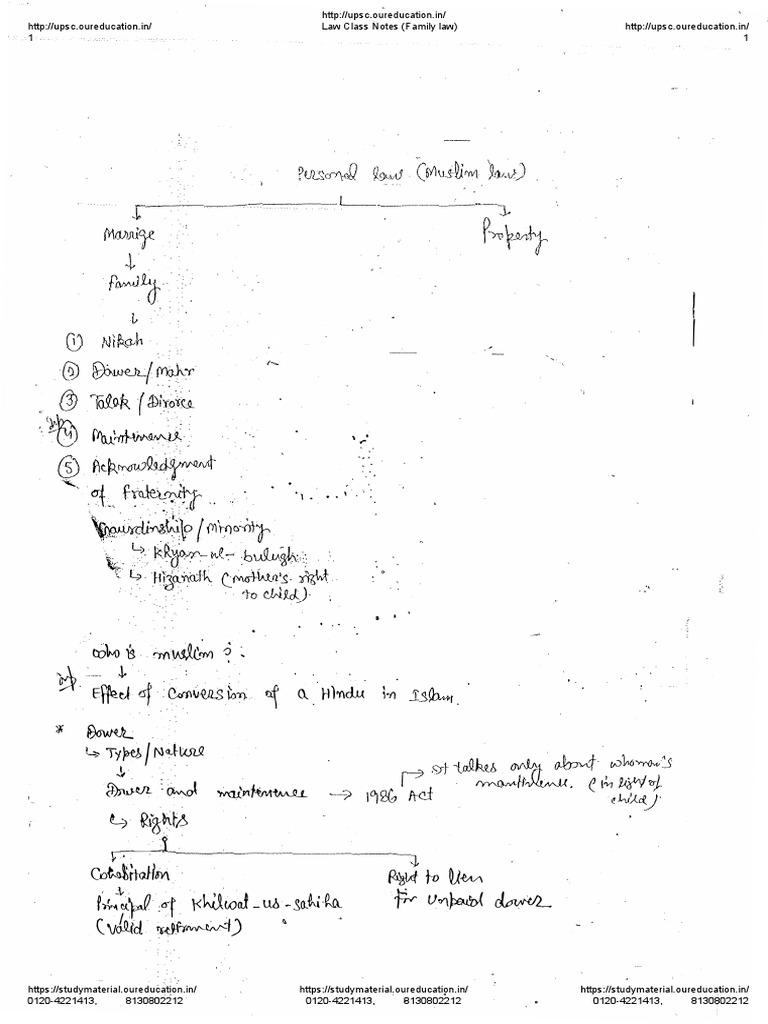 http://upsc.oureducation.in/
http://upsc.oureducation.in/ Law Class Notes (Family law) http://upsc.oureducation.in/
1 1
Personal law (Muslim law)
Marrige Property
Family
① Nikah
② Dower/Mahr
③ Talak / Divorce
Imp ④ Maintenence
⑤ Acknowledgment
of fraternity
Gaurdinship/Minority
↳ Khyar-ul-bulugh
↳ Hizanath (mother's right
to child).
Who is muslim?
Imp Effect of conversion of a Hindu in Islam.
* Dower
↳ Types/Nature
Dower and maintenence → 1986 Act
It talks only about whoman's
mantinence. (in light of
child).
↳ Rights
Cohabitation Right to lien
Principal of Khilwat-us-sahiha For unpaid dower
(valid retirement)
https://studymaterial.oureducation.in/ https://studymaterial.oureducation.in/ https://studymaterial.oureducation.in/
0120-4221413, 8130802212 0120-4221413, 8130802212 0120-4221413, 8130802212